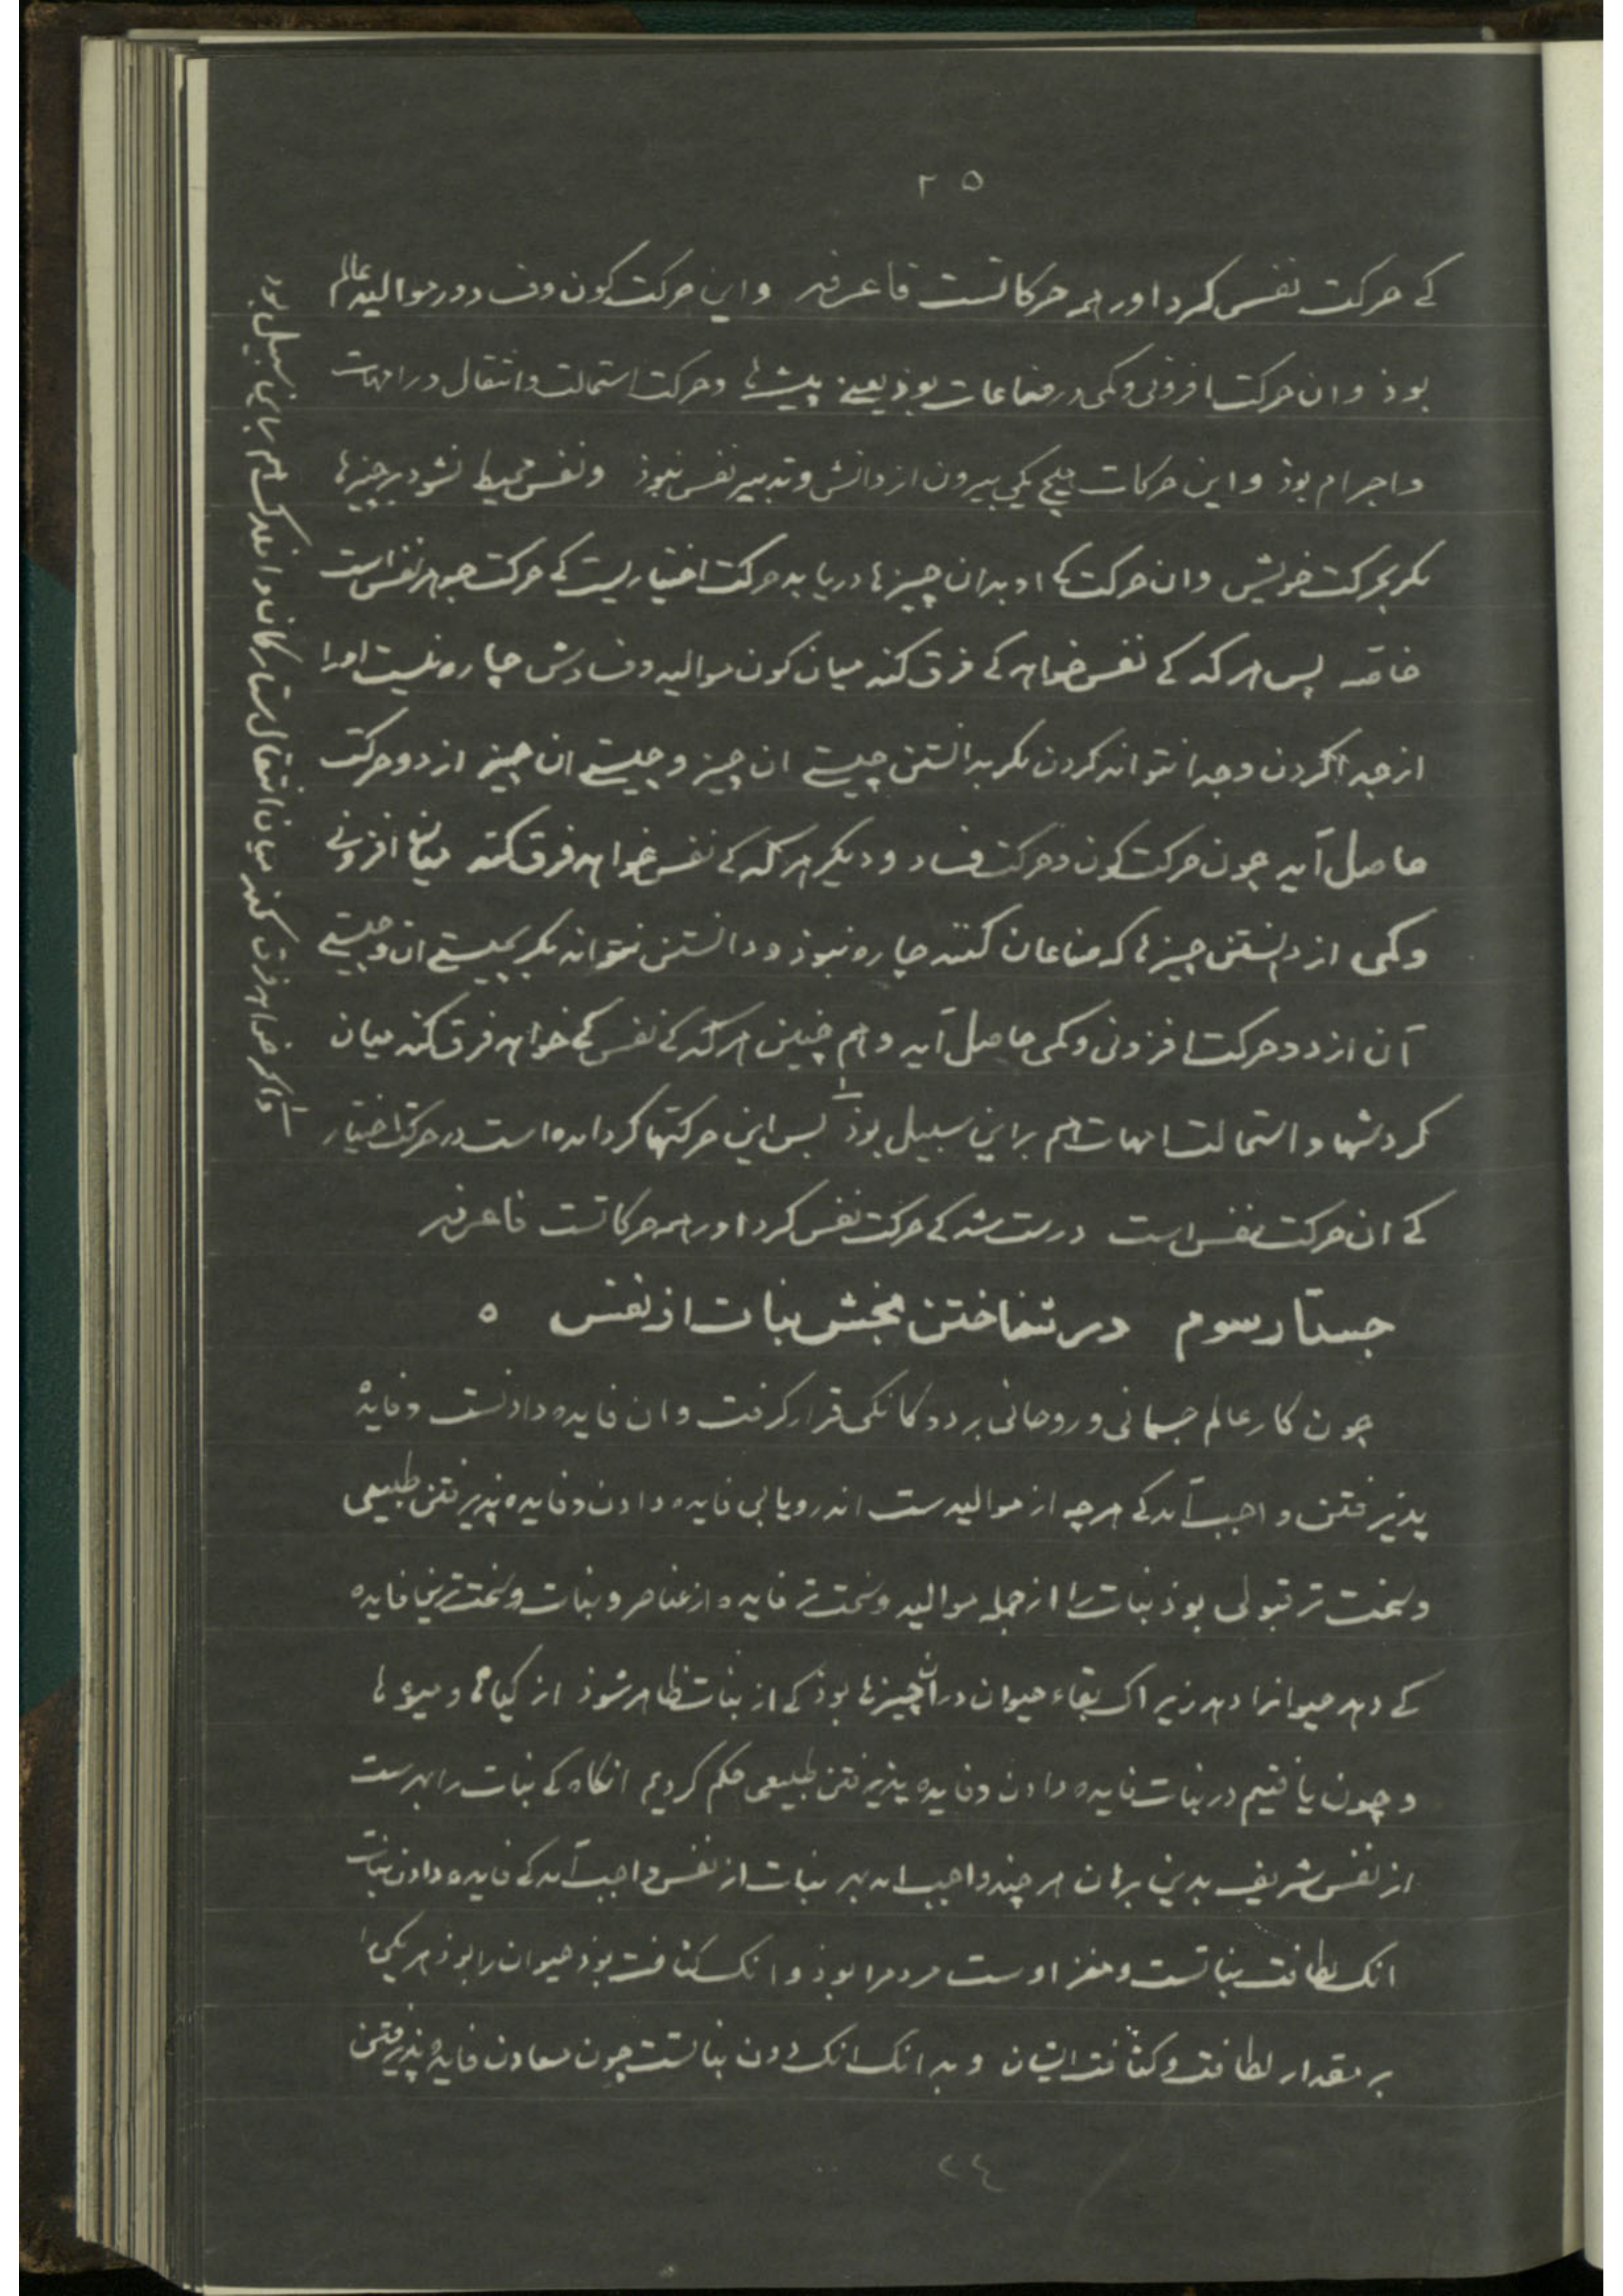 ۲۵
کے حرکت نفس کرد اور همه حرکاتست فاعرفه واین حرکت کون وفساد در موالید عالم
بوذ وان حرکت افزونی وکمی در صناعات بوذ یعنے پیشه‌ها وحرکت استحالت وانتقال در امهات
واجرام بوذ واین حرکات هیچ یکی بیرون از دانش وتدبیر نفس نبوذ ونفس محیط نشود بر چیزها
مکر بحرکت خویش وان حرکت کے او بدان چیزها دریابد حرکت اختیاریست کے حرکت جوهر نفس است
خاصه پس هرکه کے نفس خواهد کے فرق کند میان کون موالید وفسادش چاره نیست اورا
از جدا کردن وجدا نتواند کردن مکر بدانستن چیستے ان چیز وچیستے ان چیز از دو حرکت
حاصل آید چون حرکت کون وحرکت فساد ودیکر هرکه کے نفس خواهد فرق کند میان افزونے
وکمی از دانستن چیزها که صناعان کنند چاره نبوذ ودانستن نتواند مکر بچیستے ان وچیستے
آن از دو حرکت افزونی وکمی حاصل آید وهم چنین هرکه کے نفس کے خواهد فرق کند میان
کردشها واستحالت امهات هم براین سبیل بوذ پس این حرکتها کردانده است در حرکت اختیار
کے ان حرکت نفس است درست شد کے حرکت نفس کرد اور همه حرکاتست فاعرفه
جستار سوم در شناختن بخش نبات از نفس ه
چون کار عالم جسمانی وروحانی بر دو کانکی قرار کرفت وان فایده دادنست وفایده
پذیرفتن واجب آید کے هرچه از موالیدست اندرو یابی فایده دادن وفایده پذیرفتن طبیعی
وسخت تر قبولی بوذ نبات را از جمله موالید وسخت تر فایده از عناصر ونبات وسخت ترین فایده
کے دهد حیوانرا دهد زیراک بقاء حیوان دران چیزها بوذ کے از نبات ظاهر شوذ از کیاها ومیوه‌ها
وچون یافتیم در نبات فایده دادن وفایده پذیرفتن طبیعی حکم کردیم انکاه کے نبات را بهرست
از نفس شریف بدین برهان هر چند واجب اید بهر نبات از نفس واجب آید کے فایده دادن نبات
انک لطافت نباتست ومغز اوست مردم را بوذ وانک کثافت بوذ حیوان را بوذ هر یکی را
بر مقدار لطافت وکثافت ایشان وبدانک انک دون نباتست چون معادن فایده پذیرفتن
واکر خواهد فرق کند میان انتقال ستارکان وافلاک هم براین سبیل بود
۲۴